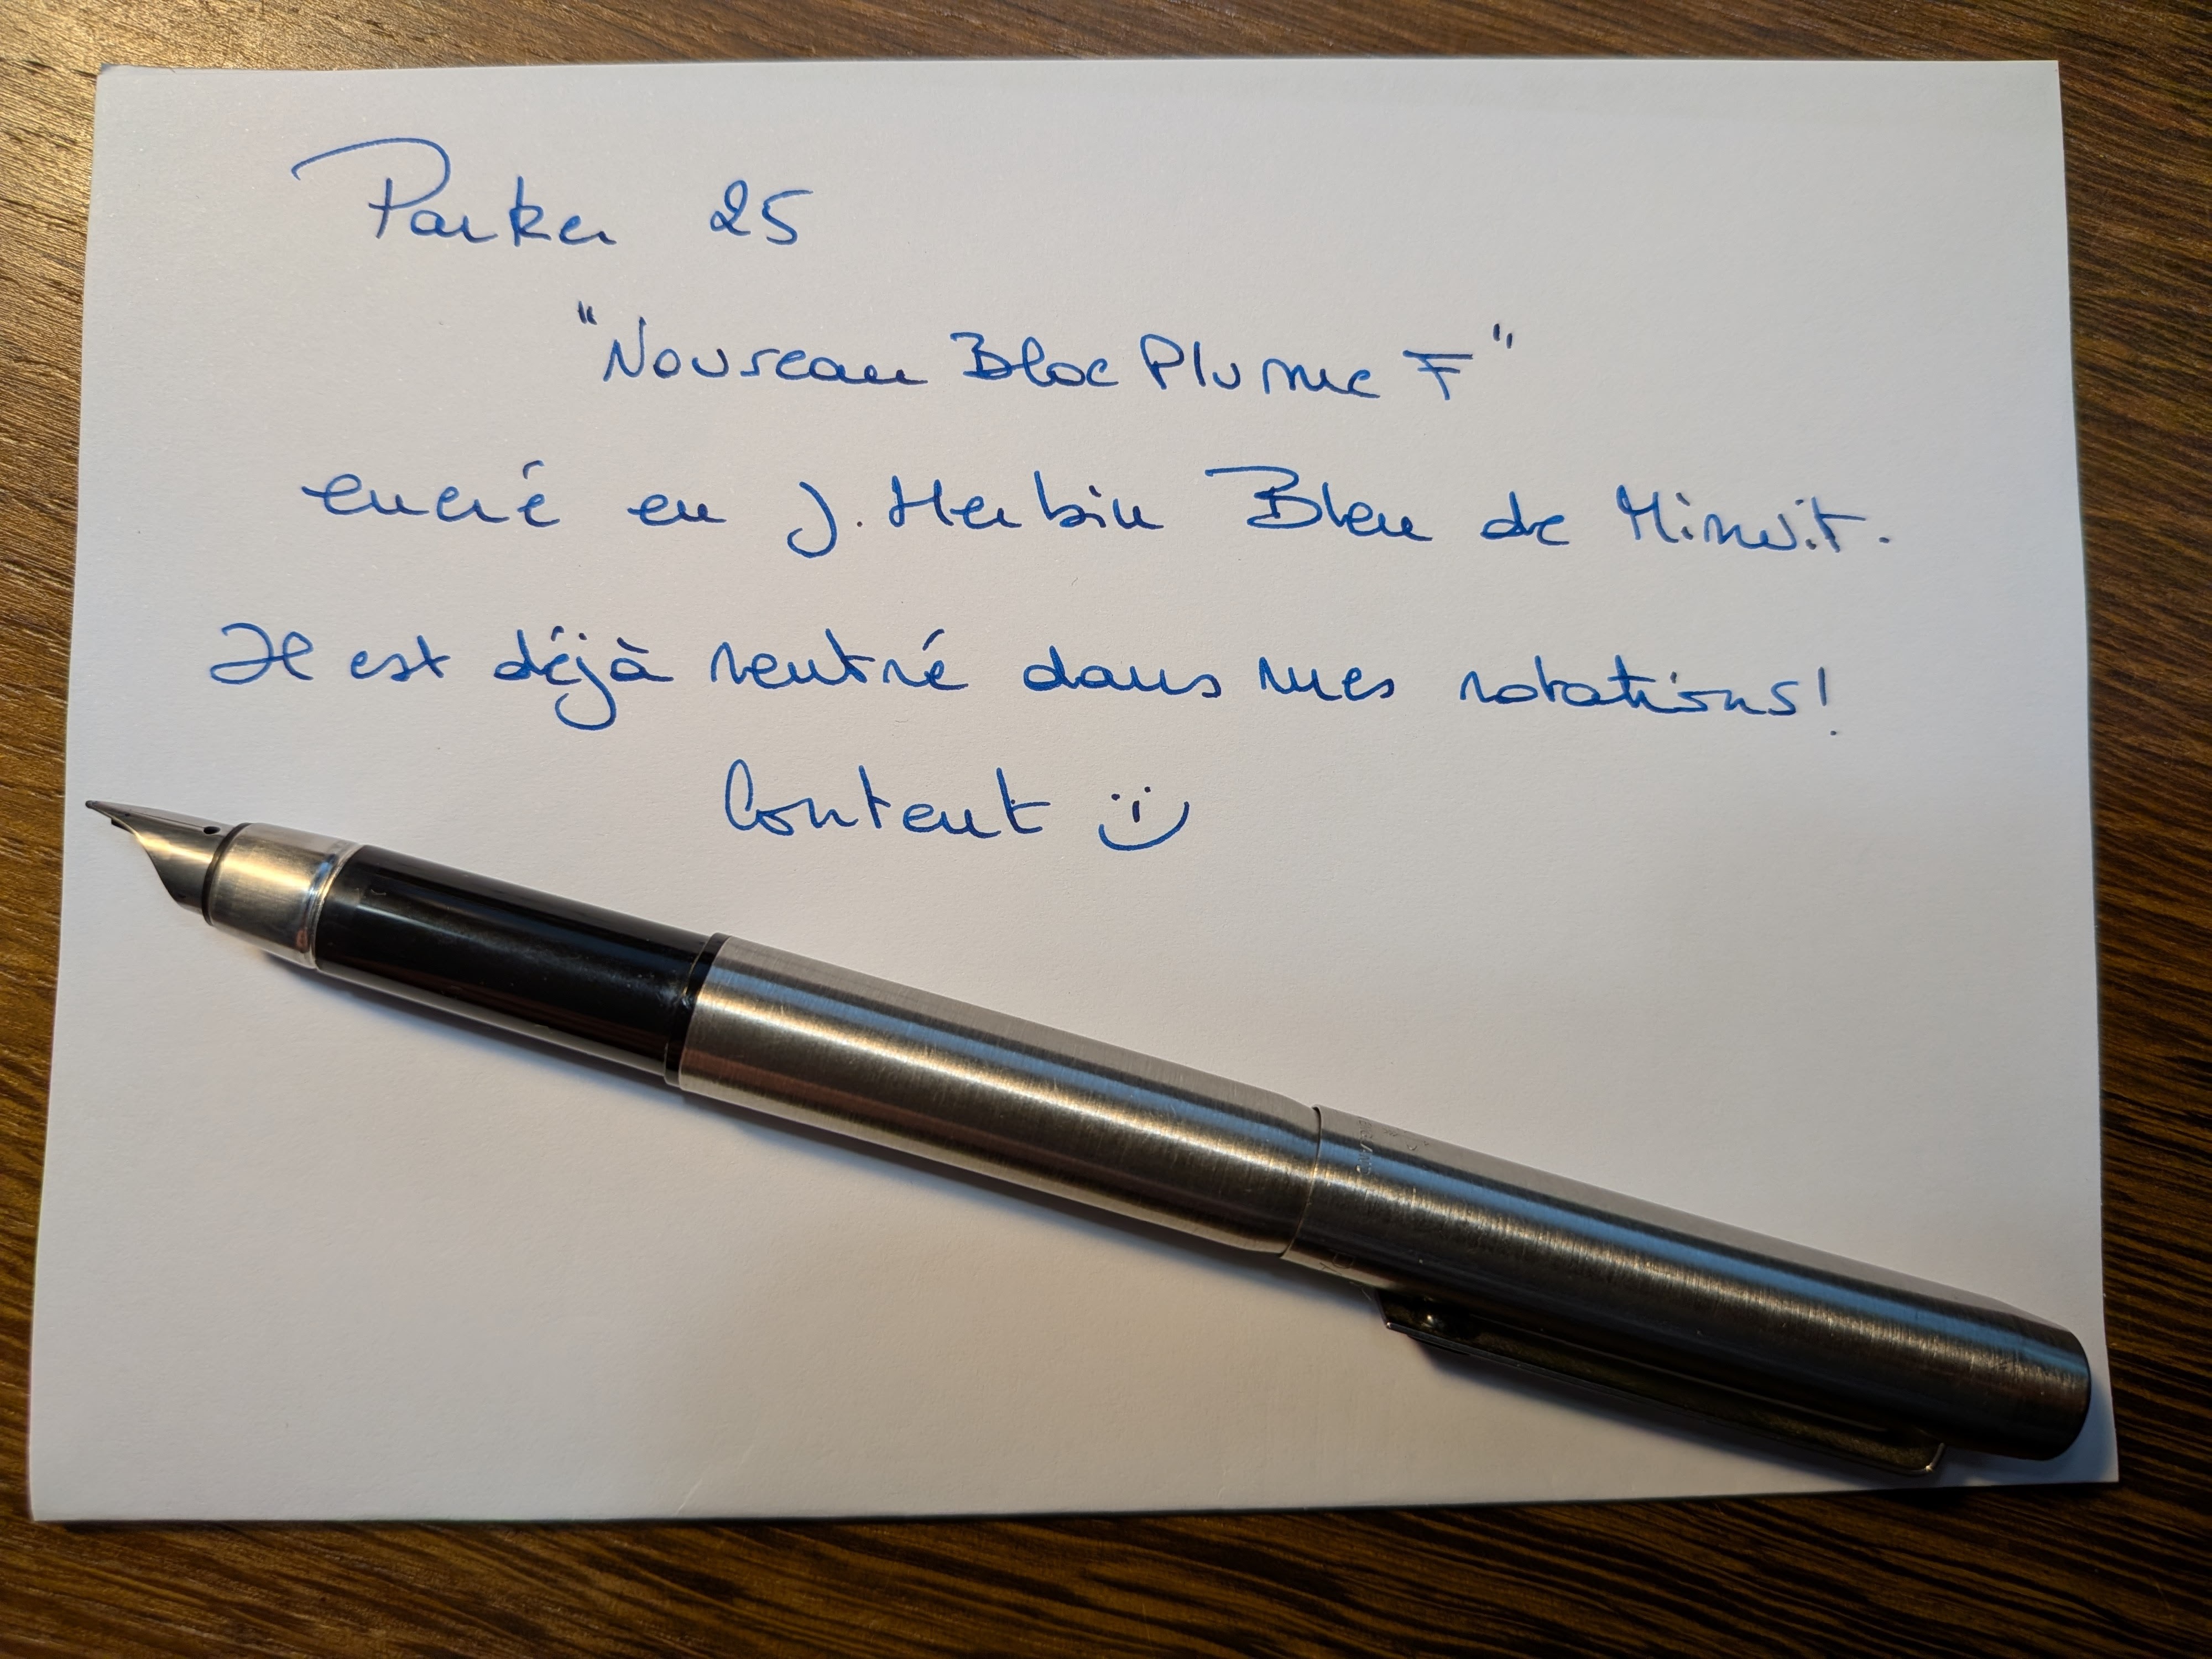 Parker 25
"Nouveau Bloc Plume F"
encré en J. Herbin Bleu de Minuit.
Il est déjà rentré dans mes rotations!
Content :i)